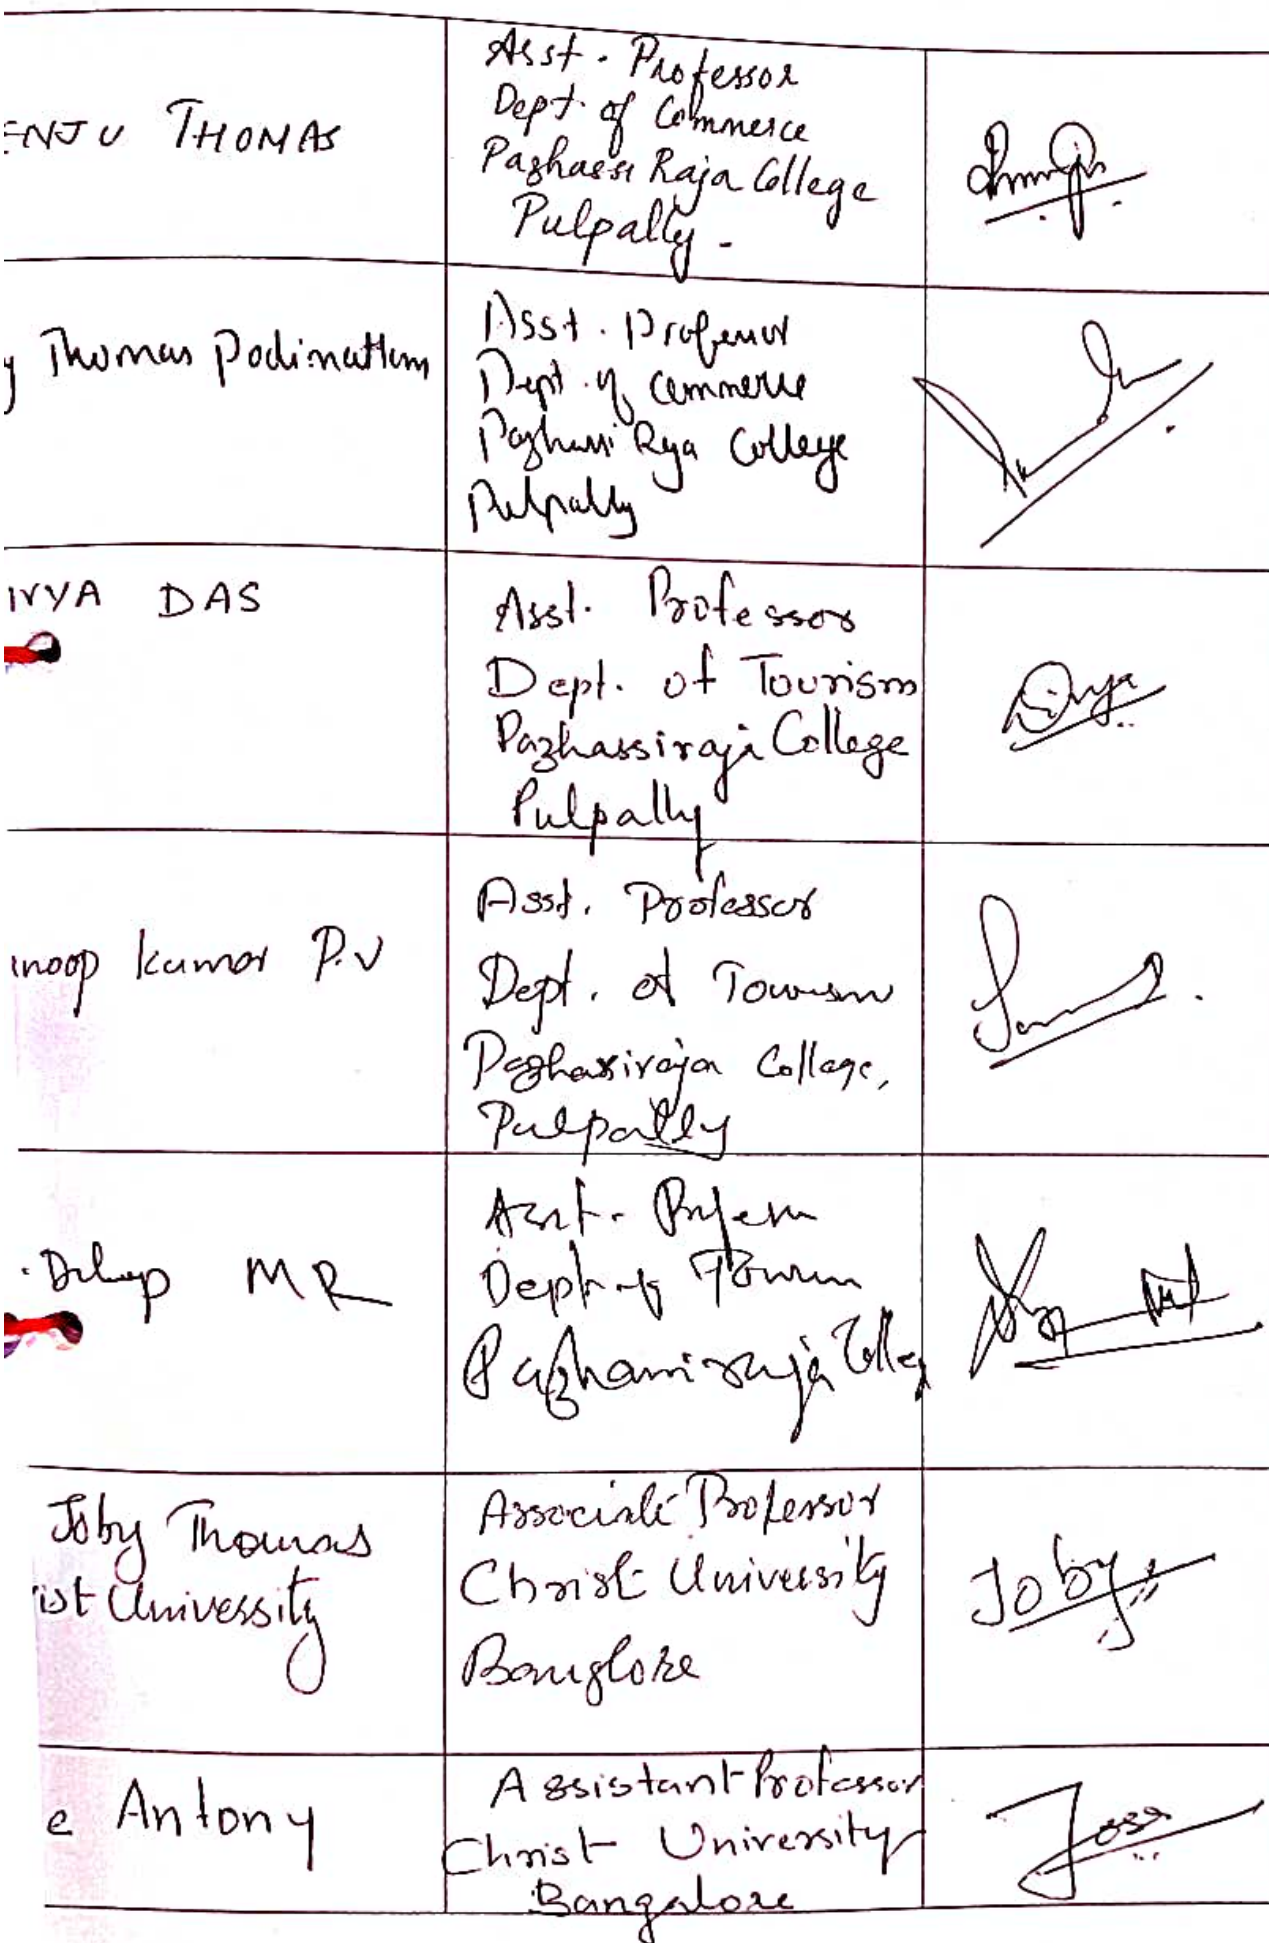 ENJU THOMAS
Asst. Professor
Dept. of Commerce
Pazhassi Raja College
Pulpally.
Thomas Podimattam
Asst. Professor
Dept. of Commerce
Pazhassi Raja College
Pulpally
IVYA DAS
Asst. Professor
Dept. of Tourism
Pazhassiraja College
Pulpally
Divya
inoop kumar P.V
Asst. Professor
Dept. of Tourism
Pazhassiraja College,
Pulpally
Dileep MR
Asst. Professor
Dept of Tourism
Pazhassiraja College
Joby Thomas
ist University
Associate Professor
Christ University
Banglore
Joby
e Antony
Assistant Professor
Christ University
Bangalore
Jose